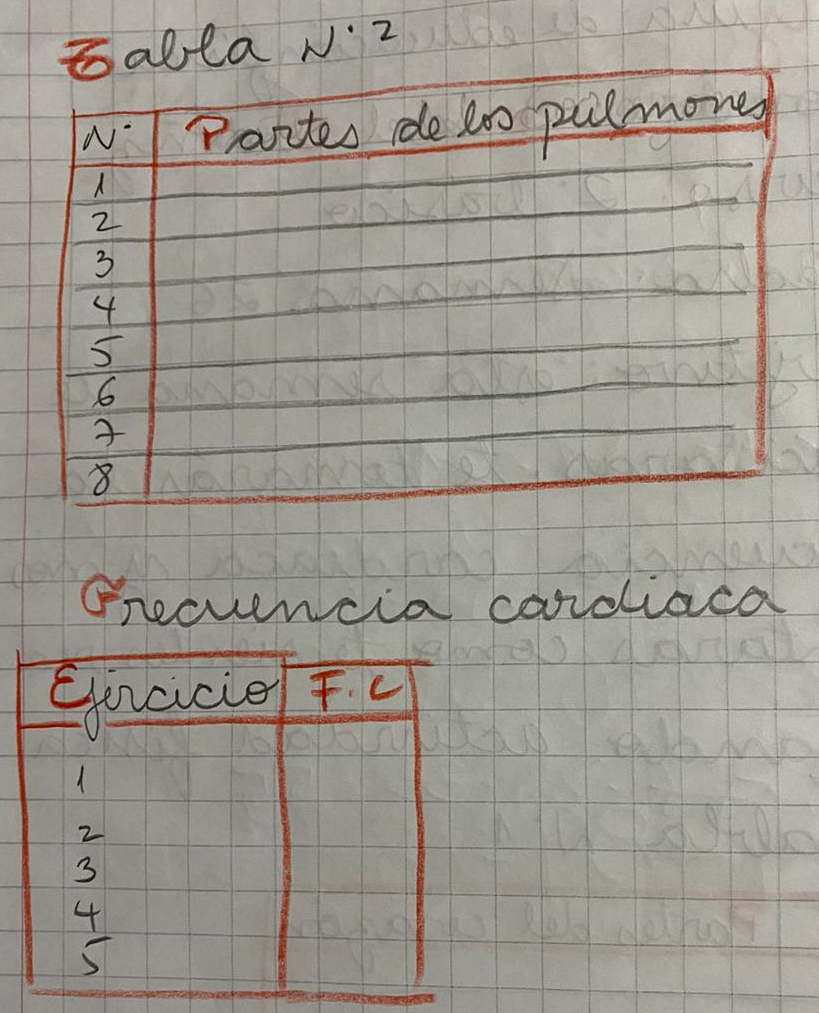 Tabla N°2
N° Partes de los pulmones
1
2
3
4
5
6
7
8
Frecuencia cardiaca
Ejercicio F.C
1
2
3
4
5